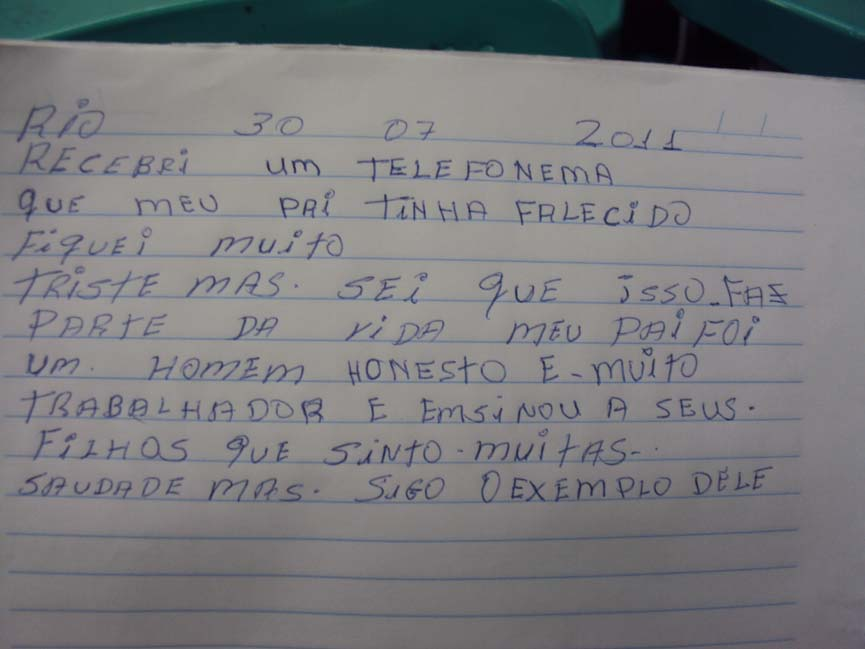 RIO 30 07 2011
RECEBRI UM TELEFONEMA
QUE MEU PAI TINHA FALECIDO
FIQUEI MUITO
TRISTE MAS. SEI QUE ISSO-FAZ
PARTE DA VIDA MEU PAI FOI
UM. HOMEM HONESTO E-MUITO
TRABALHADOR E EMSINOU A SEUS.
FILHOS QUE SINTO-MUITAS-.
SAUDADE MAS. SIGO O EXEMPLO DELE